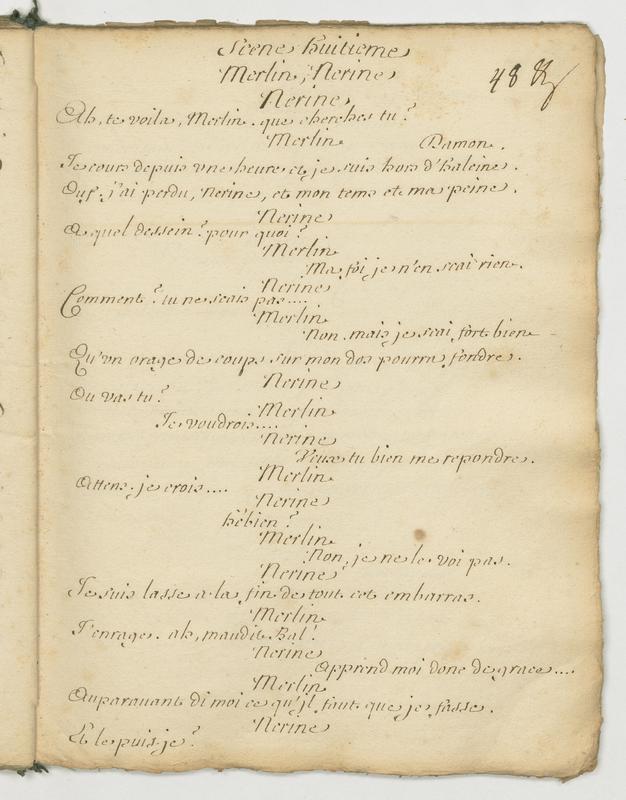 Scene huitieme
Merlin, Nerine
48
Nerine
Ah, te voila, Merlin. que cherches tu?
Merlin Damon.
Je cours depuis vne heure et je suis hors d'haleine.
Ouf. j'ai perdu, Nerine, et mon tems et ma peine.
Nerine
A quel dessein? pour quoi?
Merlin
Ma foi, je n'en scai rien.
Nerine
Comment? tu ne scais pas....
Merlin
Non. mais je scai fort bien
Qu'vn orage de coups sur mon dos pourra fondre.
Nerine
Ou vas tu?
Merlin
Je voudrois....
Nerine
Veux tu bien me repondre.
Merlin
Attens. je crois....
Nerine
hé bien?
Merlin
Non, je ne le voi pas.
Nerine
Je suis lasse a la fin de tout cet embarras.
Merlin
J'enrage. ah, maudit Bal!
Nerine
Apprend moi donc de grace....
Merlin
Auparauant di moi ce qu'jl faut que je fasse.
Nerine
Et le puis-je?